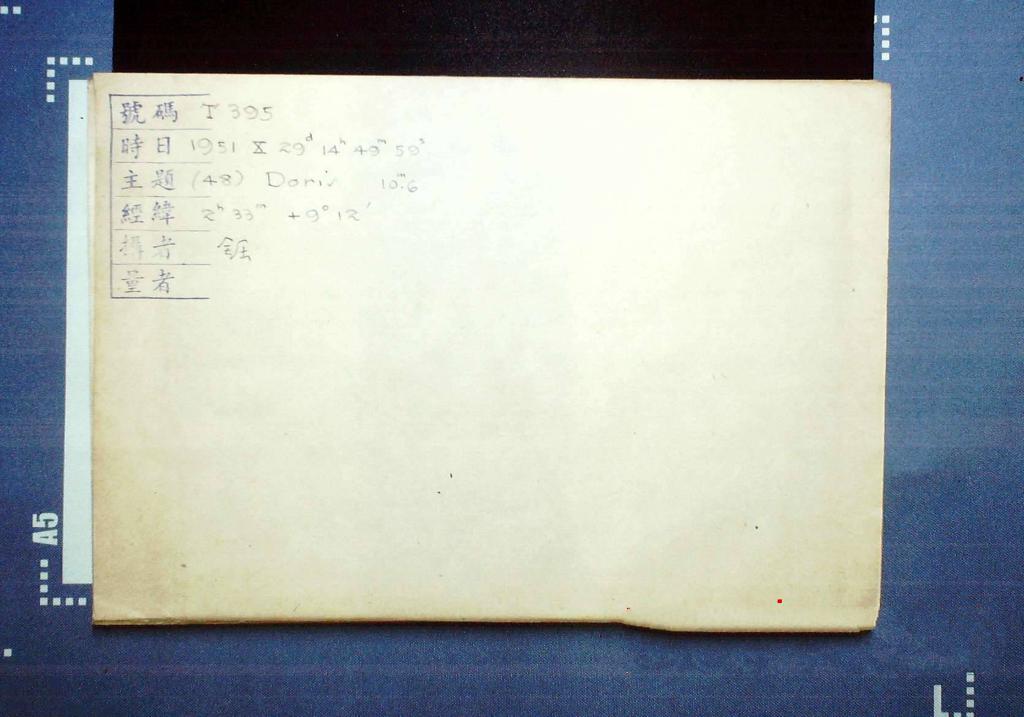 號碼 T 395
時日 1951 X 29ᵈ 14ʰ 49ᵐ 59ˢ
主題 (48) Doris 10ᵐ.6
經緯 2ʰ 33ᵐ +9° 12′
攝者
量者
A5